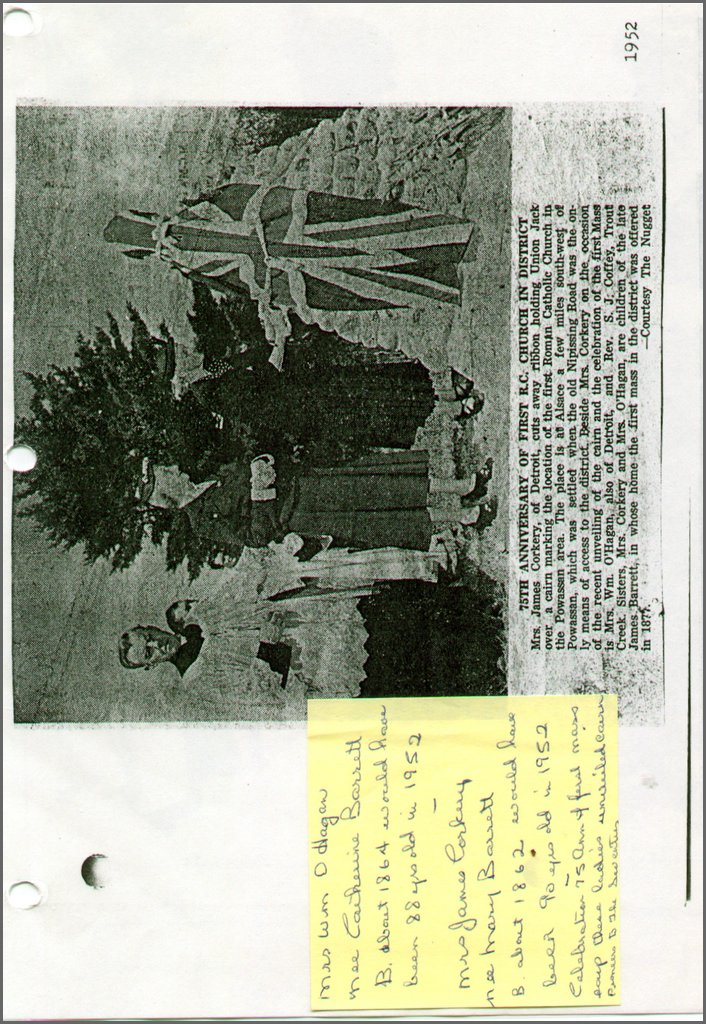 1952
75TH ANNIVERSARY OF FIRST R.C. CHURCH IN DISTRICT
Mrs. James Corkery, of Detroit, cuts away ribbon holding Union Jack
over a cairn marking the location of the first Roman Catholic Church in
the Powassan area. The place is at Alsace a few miles south-west of
Powassan, which was settled when the old Nipissing Road was the on-
ly means of access to the district. Beside Mrs. Corkery on the occasion
of the recent unveiling of the cairn and the celebration of the first Mass
is Mrs. Wm. O'Hagan, also of Detroit, and Rev. S. J. Coffey, Trout
Creek. Sisters, Mrs. Corkery and Mrs. O'Hagan, are children of the late
James Barrett, in whose home the first mass in the district was offered
in 1877.
—Courtesy The Nugget
Mrs Wm O Hagan
nee Catherine Barrett
B. about 1864 would have
been 88 yrs old in 1952
Mrs James Corkery
nee Mary Barrett
B about 1862 would have
been 90 yrs old in 1952
Celebration 75 Ann of first mass
says these ladies unveiled cairn
Pioneers to the Seventies